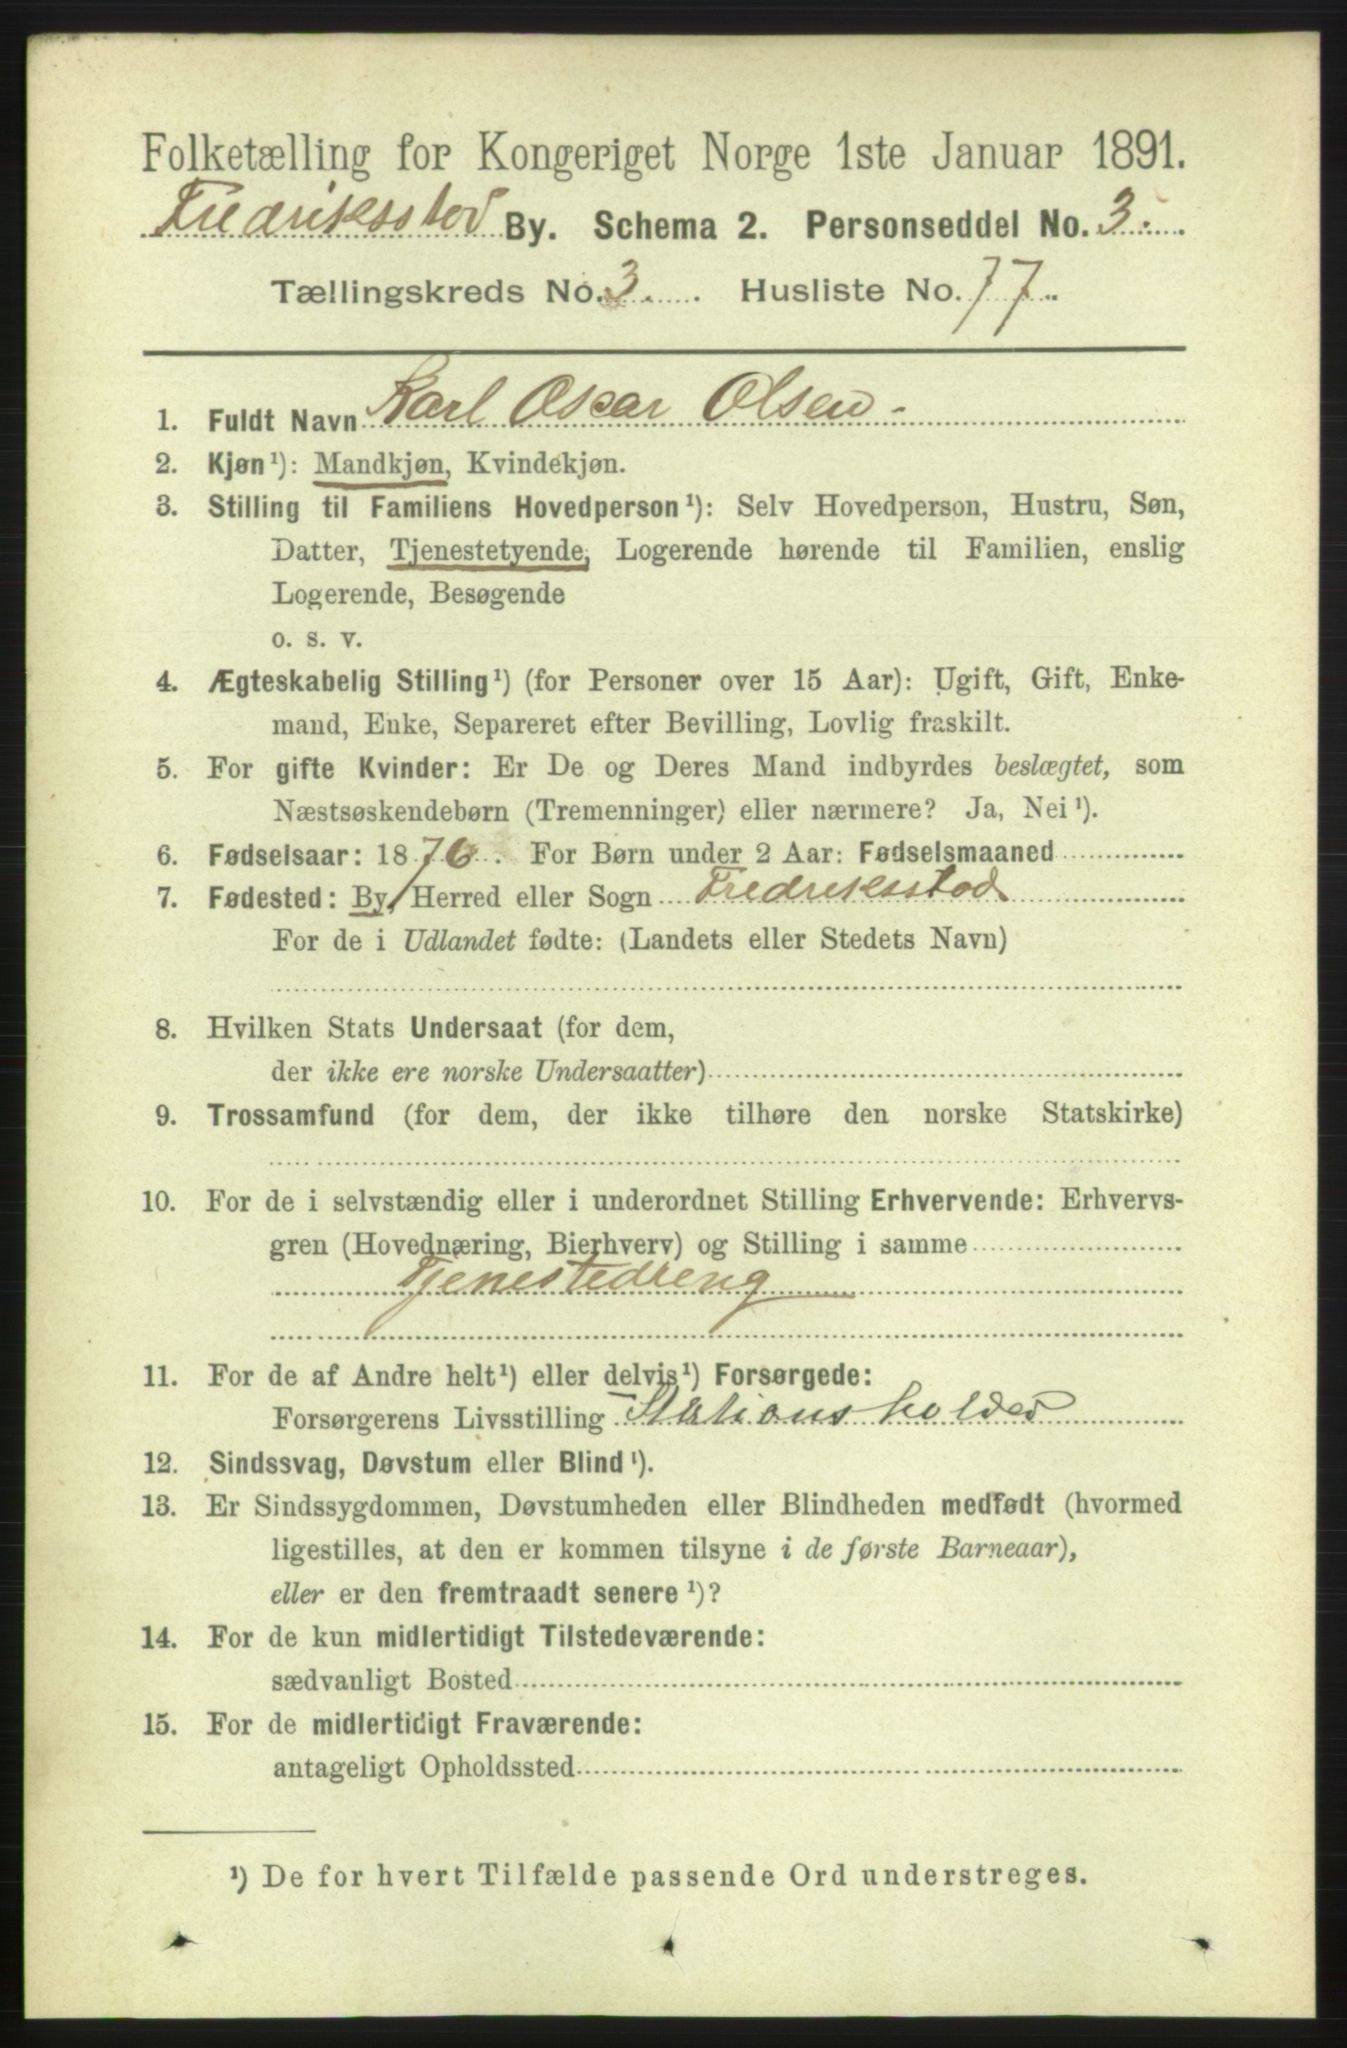 Folketælling for Kongeriget Norge 1ste Januar 1891.
Fredriksstad By. Schema 2. Personseddel No. 3.
Tællingskreds No. 3. Husliste No. 77.
1. Fuldt Navn Karl Oscar Olsen
2. Kjøn¹): Mandkjøn, Kvindekjøn.
3. Stilling til Familiens Hovedperson¹): Selv Hovedperson, Hustru, Søn,
Datter, Tjenestetyende, Logerende hørende til Familien, enslig
Logerende, Besøgende
o. s. v.
4. Ægteskabelig Stilling¹) (for Personer over 15 Aar): Ugift, Gift, Enke-
mand, Enke, Separeret efter Bevilling, Lovlig fraskilt.
5. For gifte Kvinder: Er De og Deres Mand indbyrdes beslægtet, som
Næstsøskendebørn (Tremenninger) eller nærmere? Ja, Nei¹).
6. Fødselsaar: 1876. For Børn under 2 Aar: Fødselsmaaned
7. Fødested: By, Herred eller Sogn Fredriksstad
For de i Udlandet fødte: (Landets eller Stedets Navn)
8. Hvilken Stats Undersaat (for dem,
der ikke ere norske Undersaatter)
9. Trossamfund (for dem, der ikke tilhøre den norske Statskirke)
10. For de i selvstændig eller i underordnet Stilling Erhvervende: Erhvervs-
gren (Hovednæring, Bierhverv) og Stilling i samme
Tjenestedreng
11. For de af Andre helt¹) eller delvis¹) Forsørgede:
Forsørgerens Livsstilling Stationsholder
12. Sindssvag, Døvstum eller Blind¹).
13. Er Sindssygdommen, Døvstumheden eller Blindheden medfødt (hvormed
ligestilles, at den er kommen tilsyne i de første Barneaar),
eller er den fremtraadt senere¹)?
14. For de kun midlertidigt Tilstedeværende:
sædvanligt Bosted
15. For de midlertidigt Fraværende:
antageligt Opholdssted
¹) De for hvert Tilfælde passende Ord understreges.